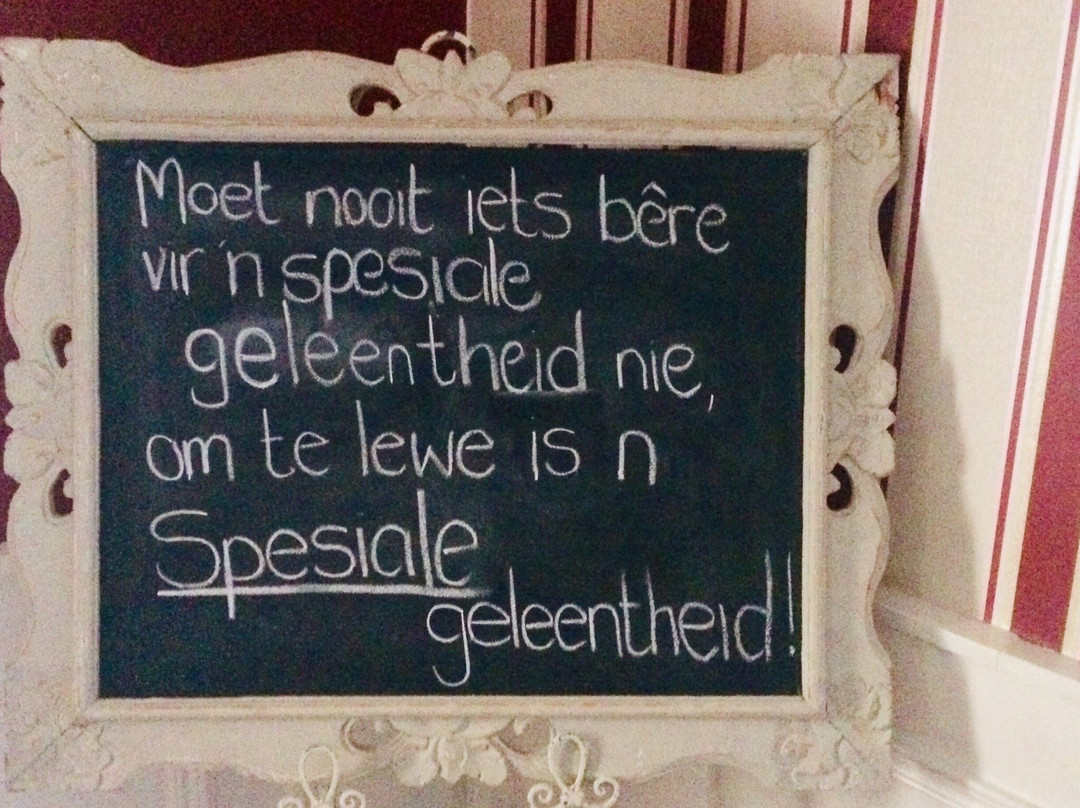 Moet nooit iets bêre
vir 'n spesiale
geleentheid nie,
om te lewe is n
Spesiale
geleentheid!